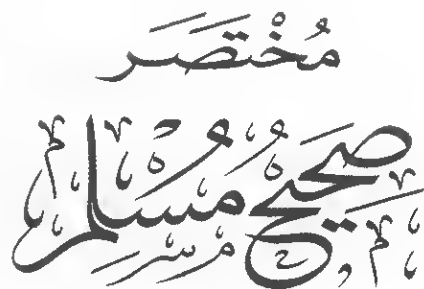 مُخْتَصَر
صَحِيحُ مُسْلِم